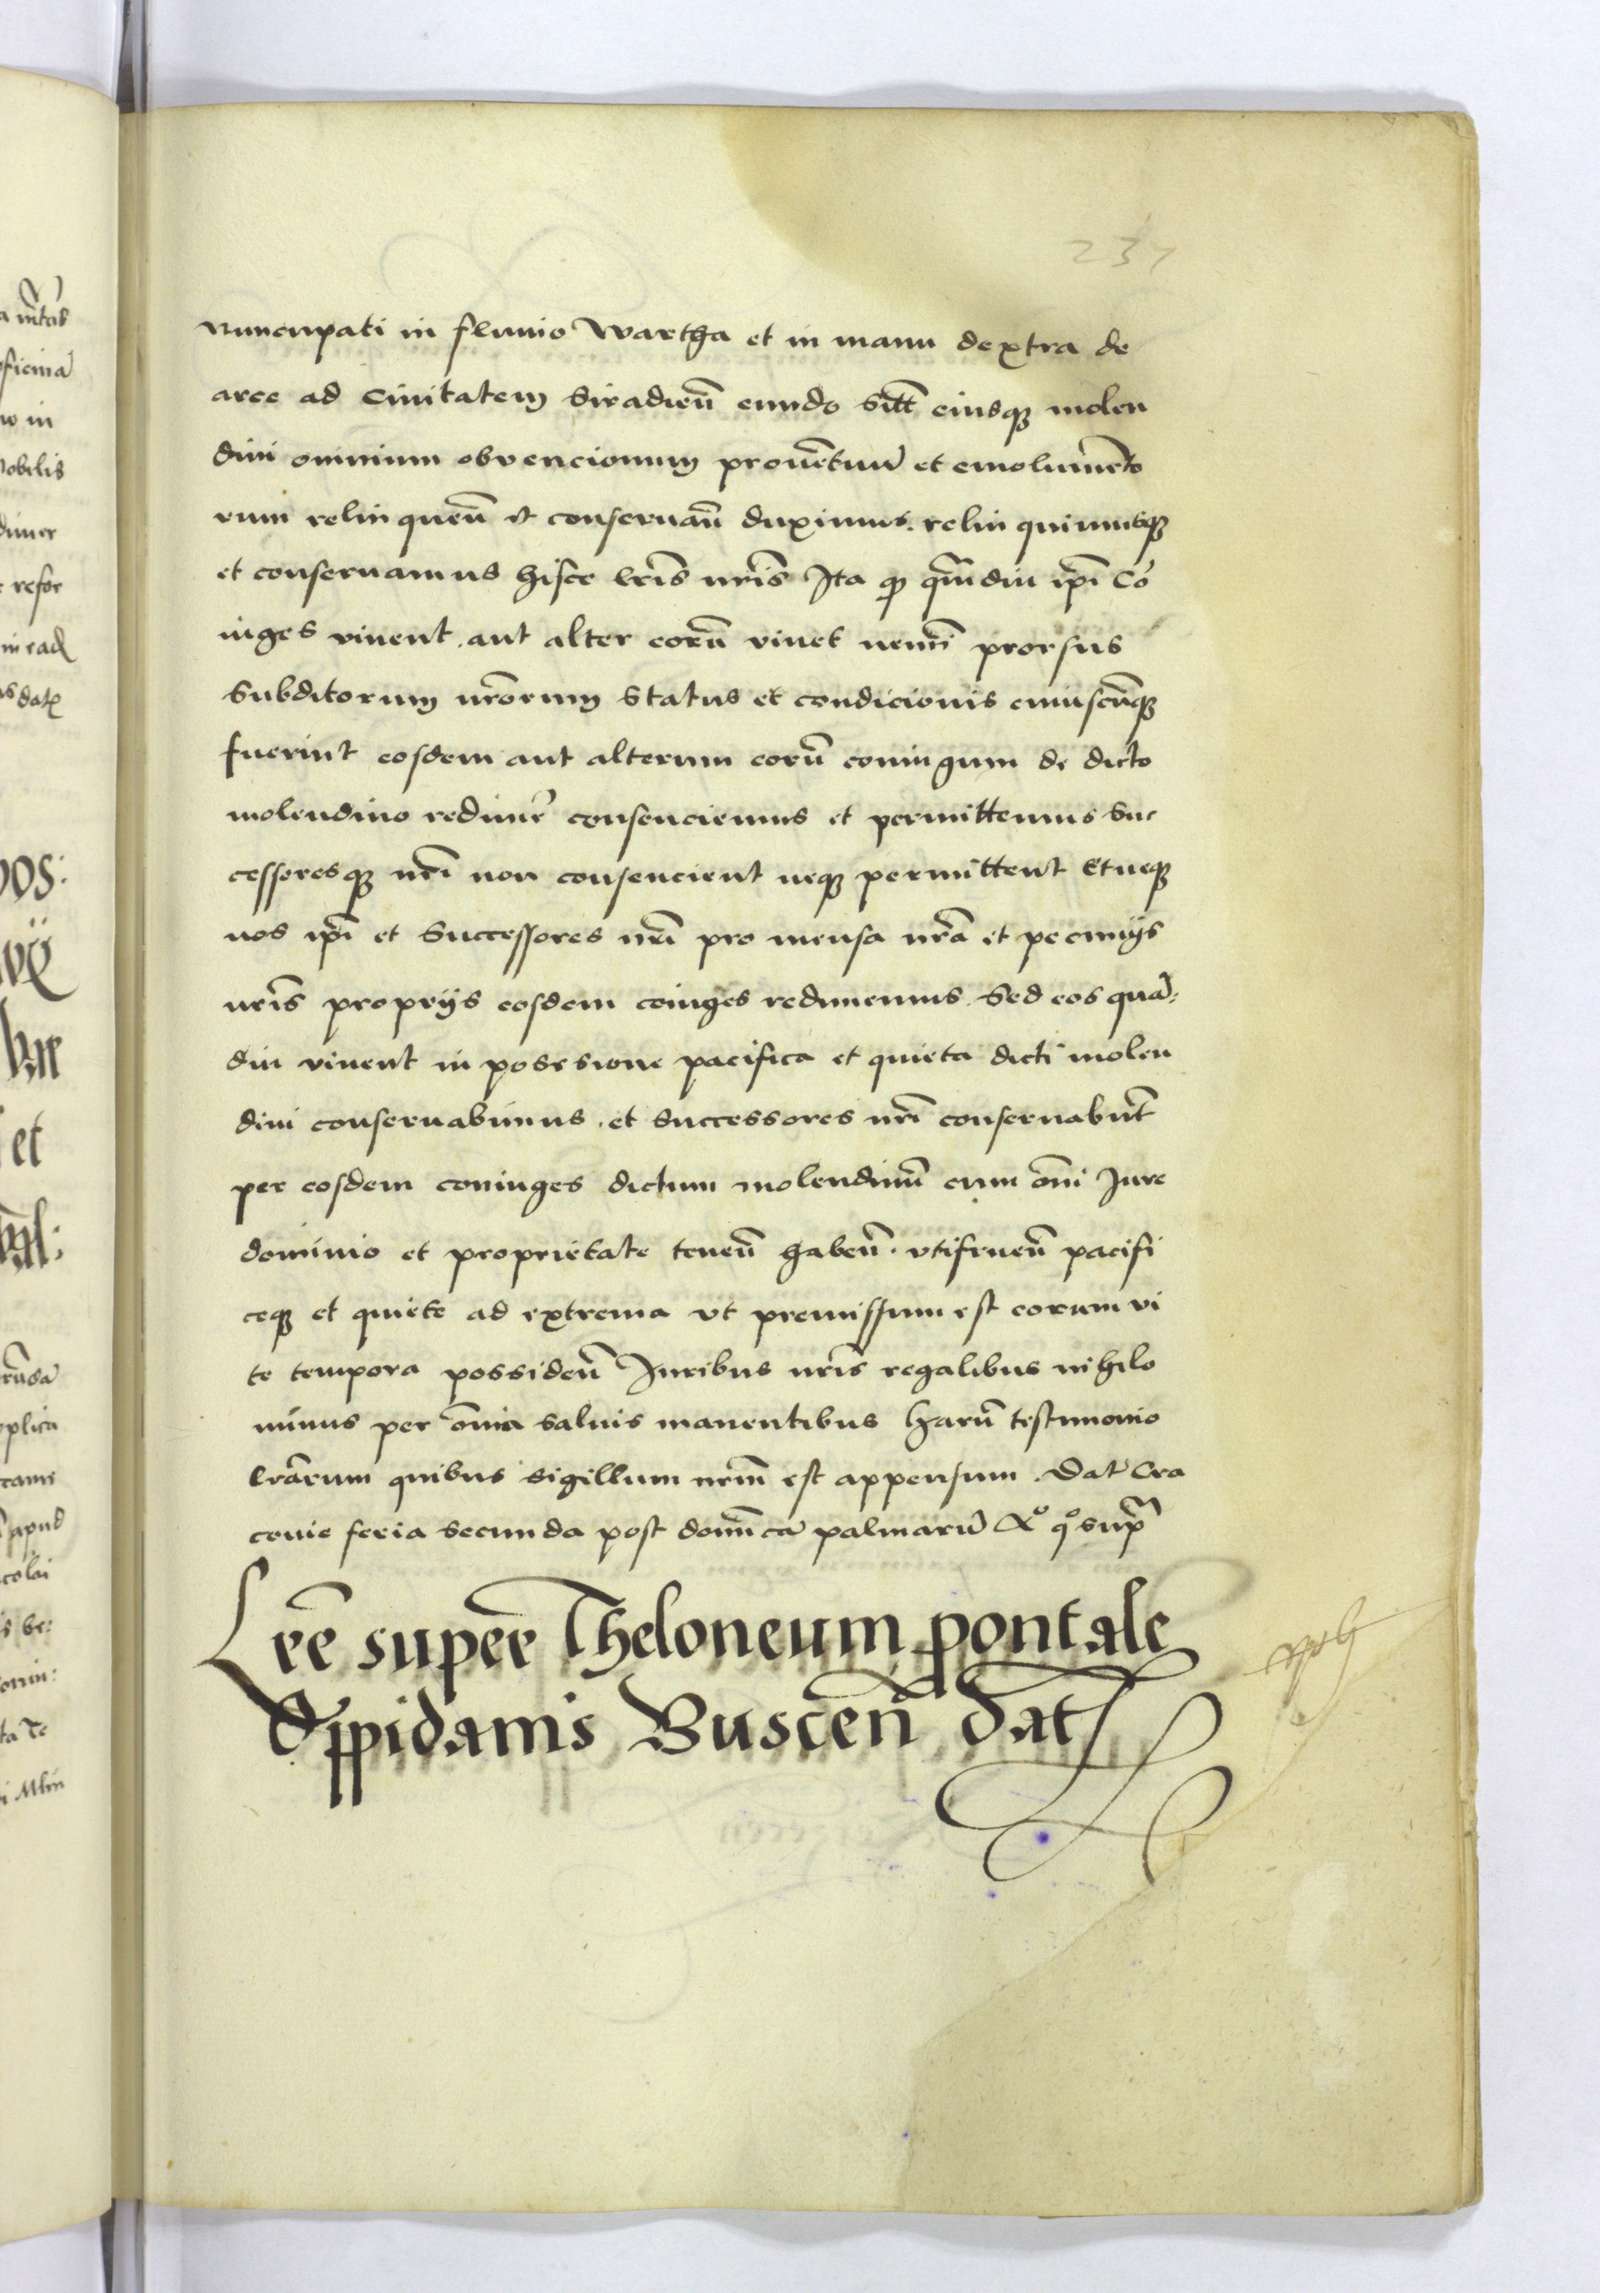 237
nuncupati in fluuio Wartha et in manu dextra de
arce ad Ciuitatem Siradieñ eundo Sitt̃ eiusq̃ molen
dini omnium obvencionum prouẽtuũ et emolumẽto
rum relinqueñ et conseruañ duximus. relinquimusq̃
et conseruamus hisce lr̃is nr̃is Ita q̃ q̃mdiu ip̃i Cõ
iuges viuent. aut alter eorũ viuet nemĩ prorsus
Subditorum nr̃orum Status et condicionis cuiuscũq̃
fuerint eosdem aut alterum eorũ coniugum de dicto
molendino redimer̃ consenciemus et permittemus Suc
cessoresq̃ nr̃i non consencient neq̃ permittent Et neq̃
nos ip̃i et Successores nr̃i pro mensa nr̃a et pecunijs
nr̃is proprijs eosdem cõiuges redimemus. Sed eos quã:
diu viuent in possesione pacifica et quieta dicti molen
dini conseruabimus. et Successores nr̃i conseruabũt
per eosdem coniuges dictum molendinũ cum om̃i Jure
dominio et proprietate teneñ habeñ. vtifrueñ pacifi
ceq̃ et quiete ad extrema vt premissum est eorum vi
te tempora possideñ Juribus nr̃is regalibus nihilo
minus per om̃ia saluis manentibus harũ testimonio
lr̃arum quibus Sigillum nr̃m est appensum. Dat̃ Cra
couie feria secunda post domĩca palmarũ Aº qº sup̃
Lr̃e super Theloneum pontale
Oppidanis Buscen̄ dat̃